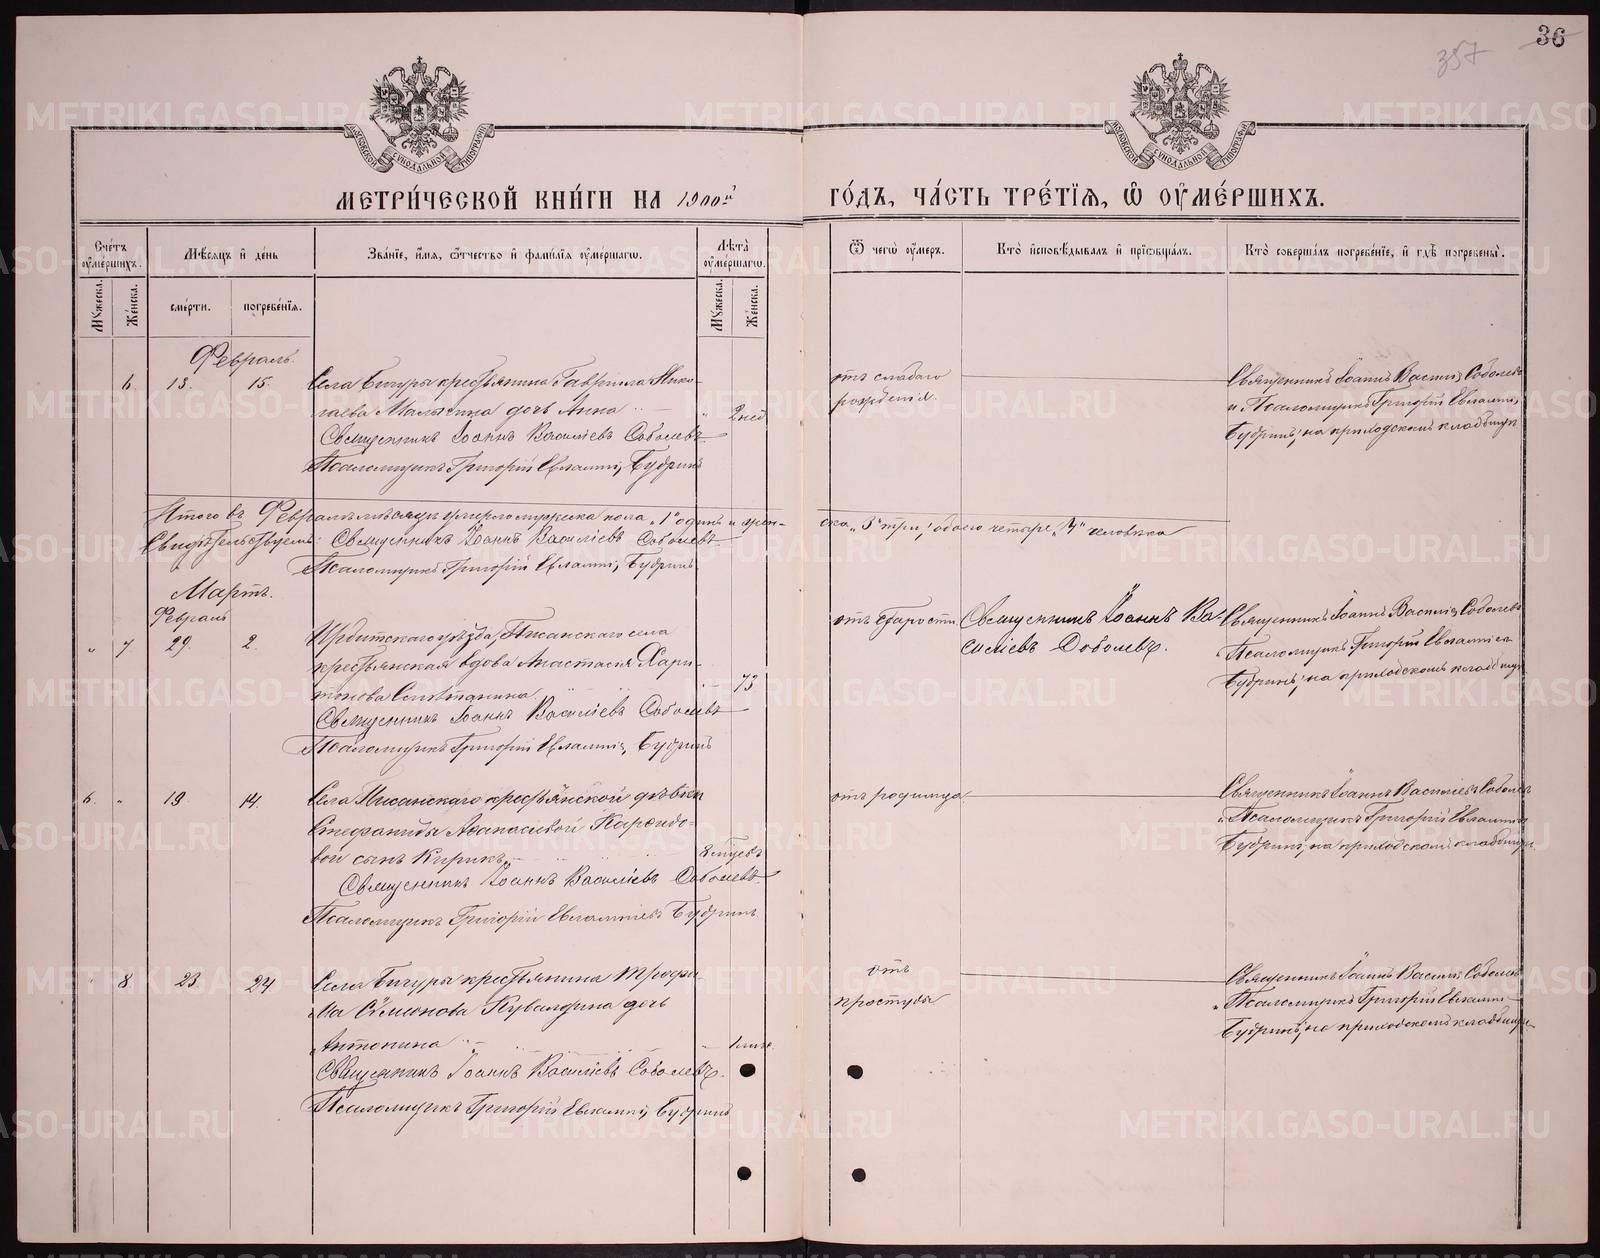 36
357
МОСКОВСКОЙ СУНОДАЛЬНОЙ ТИПОГРАФІИ
МОСКОВСКОЙ СУНОДАЛЬНОЙ ТИПОГРАФІИ
МЕТРИ́ЧЕСКОЙ КНИ́ГИ НА 1900й
ГО́ДЪ, ЧА́СТЬ ТРЕ́ТІЯ, Ѡ ОУМЕ́РШИХЪ.
Сче́тъ оуме́ршихъ.
Мѣ́сяцъ и де́нь
Зва́ніе, и́мя, ѻ́тчество и фами́лія оуме́ршагѡ.
Лѣ́та оуме́ршагѡ.
Ѿ чегѡ̀ оу́меръ.
Кто̀ исповѣ́дывалъ и приѻбща́лъ.
Кто̀ соверша́лъ погребе́ніе, и гдѣ̀ погребены̀.
Му́жеска.
Же́нска.
сме́рти.
погребе́нія.
Му́жеска.
Же́нска.
Февраль.
6. 13. 15. Села Бичуры крестьянина Гавріила Нико-
лаева Малыгина дочь Анна 2 нед
Священникъ Іоаннъ Васильевъ Соболевъ
Псаломщикъ Григорій Евламп. Будринъ
отъ слабаго
рожденія.
Священникъ Іоаннъ Васил. Соболевъ
и Псаломщикъ Григорій Евламп.
Будринъ, на приходскомъ кладбищѣ
Итого въ Февралѣ мѣсяцѣ умерло мужеска пола „1" одинъ и жен-
ска „3" три, обоего четыре „4" человѣка
Свидѣтельствуемъ: Священникъ Іоаннъ Васильевъ Соболевъ
Псаломщикъ Григорій Евламп. Будринъ
Мартъ.
Февраль
„ 7 29. 2. Ирбитскаго уѣзда, Писанскаго села
крестьянская вдова Анастасія Хари-
тонова 73
Священникъ Іоаннъ Васильевъ Соболевъ
Псаломщикъ Григорій Евламп. Будринъ
отъ старости
Священникъ Іоаннъ Ва-
сильевъ Соболевъ.
Священникъ Іоаннъ Васил. Соболевъ
Псаломщикъ Григорій Евлампіев
Будринъ, на приходскомъ кладбищѣ
6. „ 13. 14. Села Писанскаго крестьянской дѣвки
Стефаниды Аѳанасьевой
вой сынъ Кирикъ 8 мѣсев
Священникъ Іоаннъ Васильевъ Соболевъ
Псаломщикъ Григорій Евлампіевъ Будринъ
отъ родимца
Священникъ Іоаннъ Васильев Соболев
и Псаломщикъ Григорій Евлампіев
Будринъ, на приходском кладбищѣ
8 23. 24 Села Бичуры крестьянина Трофи-
ма Семенова Кувалдина дочь
Антонина
Священникъ Іоаннъ Васильевъ Соболевъ.
Псаломщикъ Григорій Евламп. Будринъ
отъ
простуды
Священникъ Іоаннъ Васил. Соболевъ
и Псаломщикъ Григорій Евламп.
Будринъ, на приходскомъ кладбищѣ
METRIKI.GASO-URAL.RU